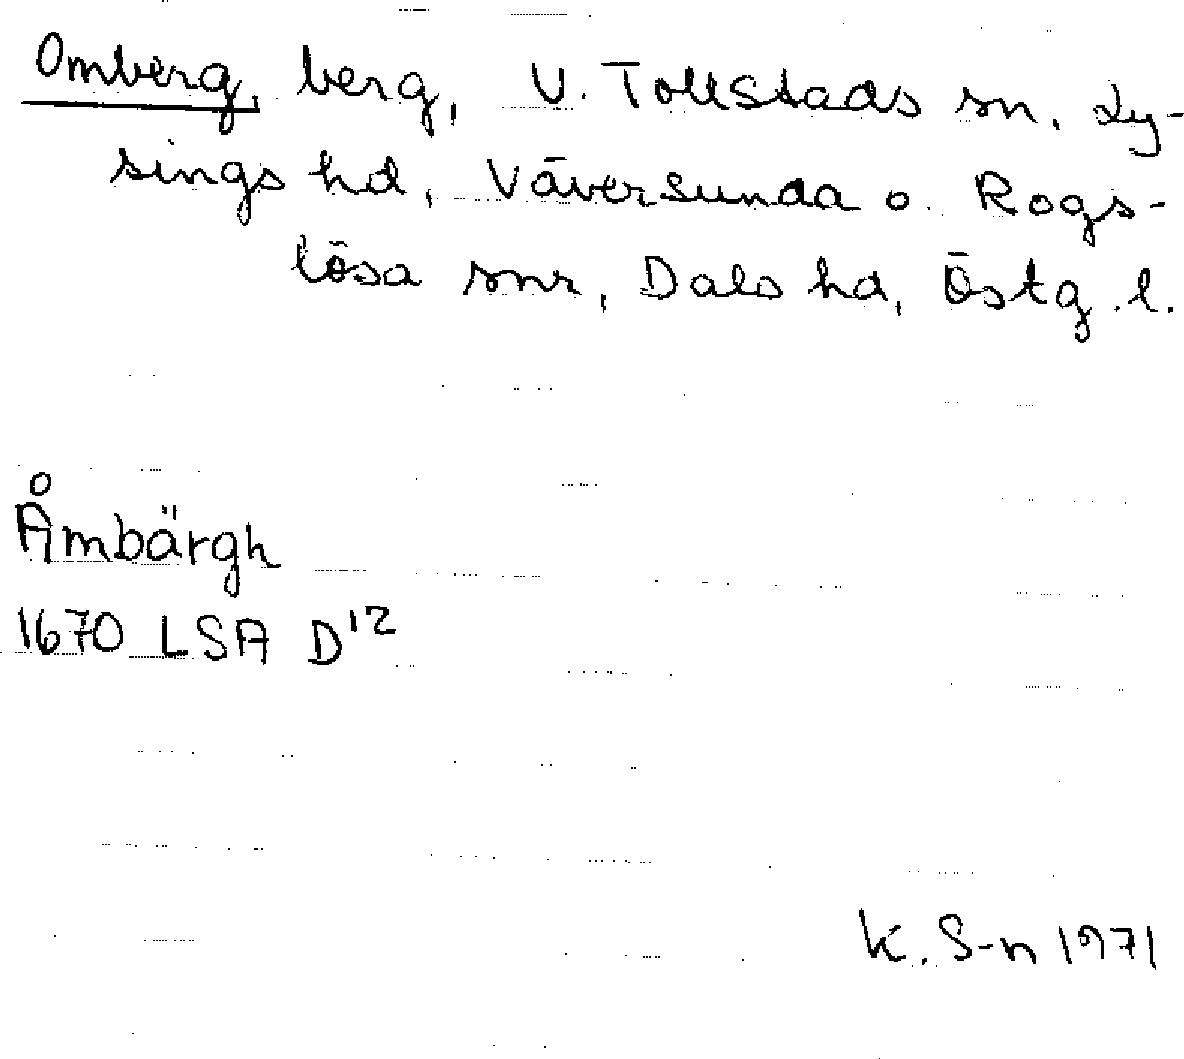 Omberg, berg, V. Tollstads sn, Ly-
sings hd, Väversunda o. Rogs-
lösa snr, Dals hd, Östg. l.
Åmbärgh
1670 LSA D¹²
K. S-n 1971